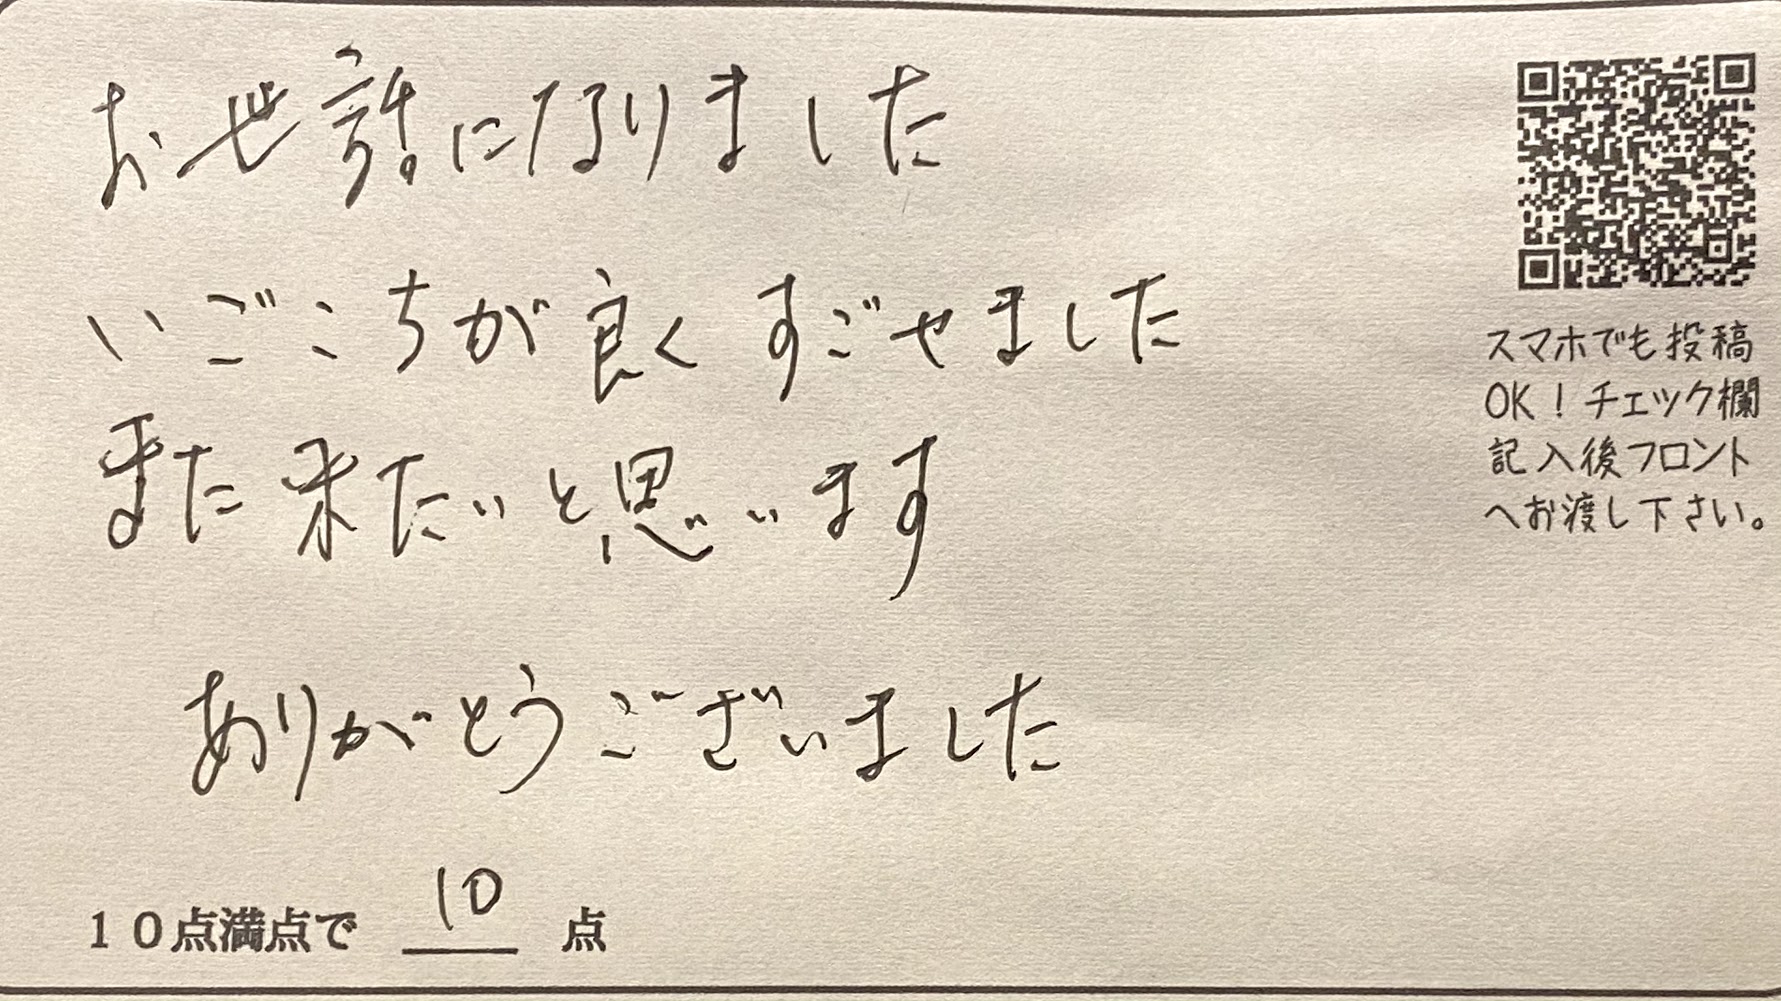 お世話になりました
いごこちが良くすごせました
また来たいと思います
ありがとうございました
10点満点で 10 点
スマホでも投稿
OK！チェック欄
記入後フロント
へお渡し下さい。